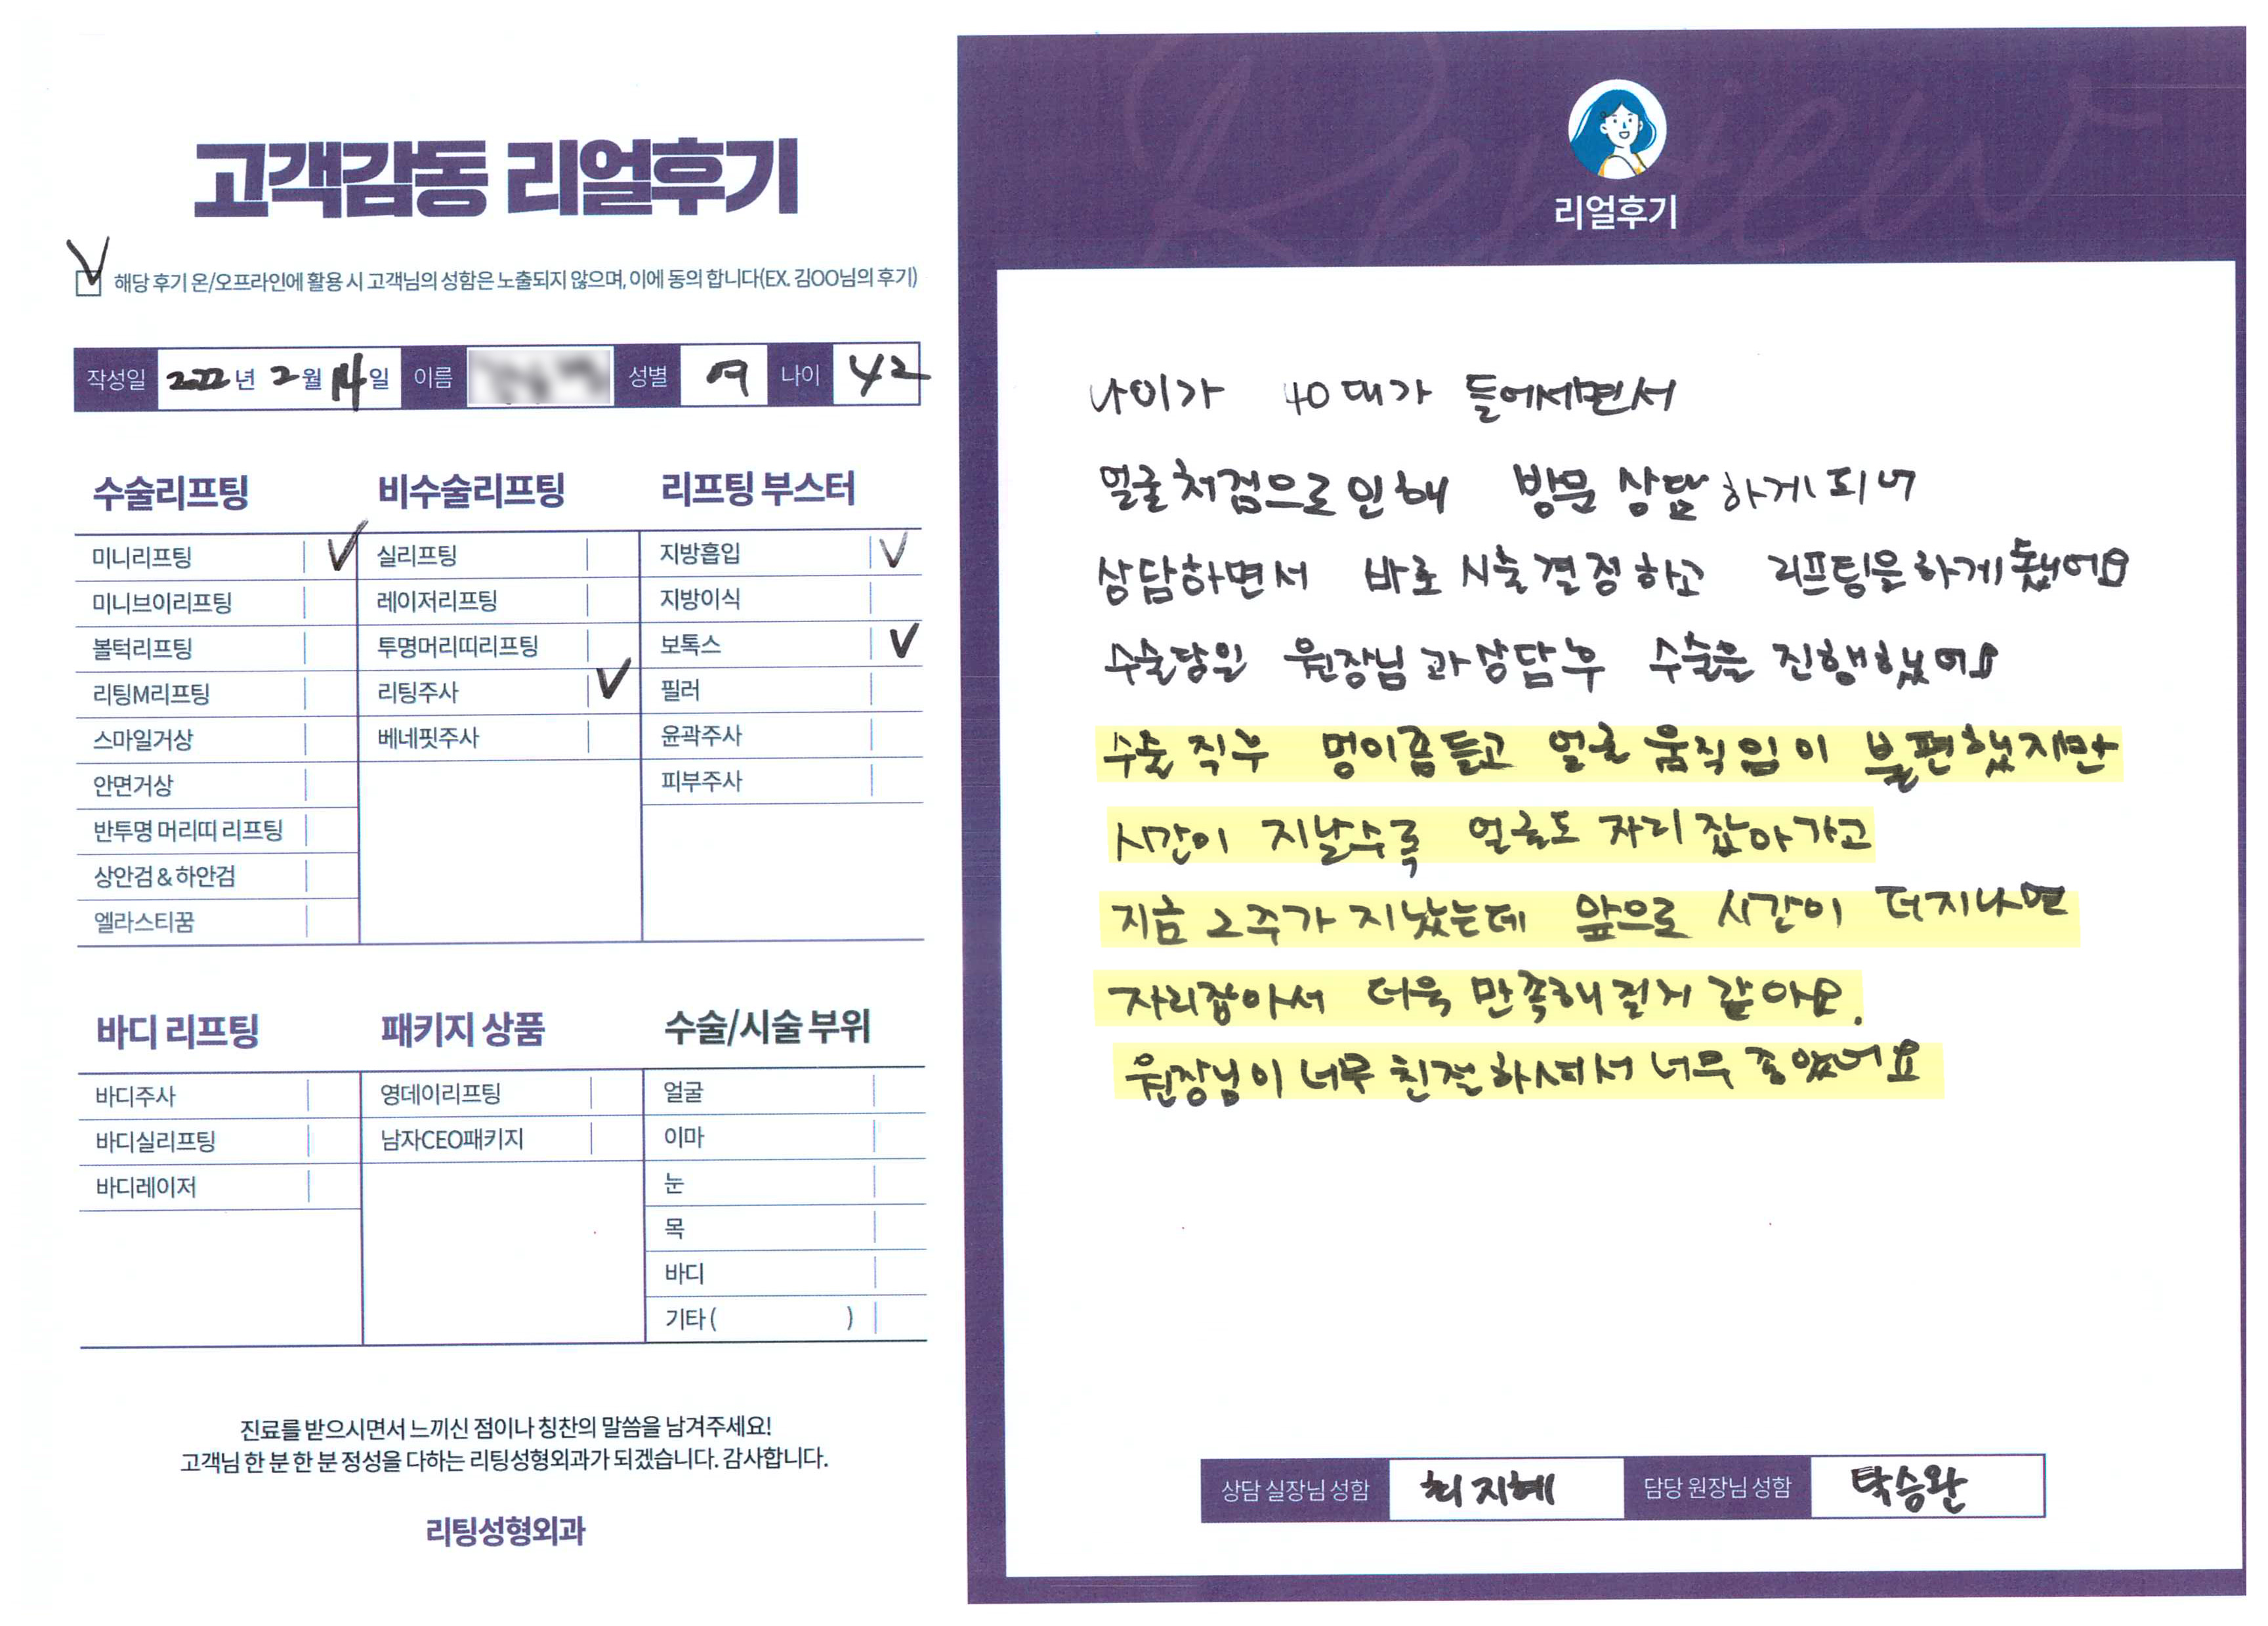 고객감동 리얼후기
해당 후기 온/오프라인에 활용 시 고객님의 성함은 노출되지 않으며, 이에 동의 합니다(EX. 김OO님의 후기)
작성일 2022년 2월 14일 이름 성별 여 나이 42
수술리프팅
미니리프팅
미니브이리프팅
볼턱리프팅
리팅M리프팅
스마일거상
안면거상
반투명 머리띠 리프팅
상안검 & 하안검
엘라스티꿈
비수술리프팅
실리프팅
레이저리프팅
투명머리띠리프팅
리팅주사
베네핏주사
리프팅 부스터
지방흡입
지방이식
보톡스
필러
윤곽주사
피부주사
바디 리프팅
바디주사
바디실리프팅
바디레이저
패키지 상품
영데이리프팅
남자CEO패키지
수술/시술 부위
얼굴
이마
눈
목
바디
기타 ( )
진료를 받으시면서 느끼신 점이나 칭찬의 말씀을 남겨주세요!
고객님 한 분 한 분 정성을 다하는 리팅성형외과가 되겠습니다. 감사합니다.
리팅성형외과
Review
리얼후기
나이가 40대가 들어서면서
얼굴처짐으로 인해 방문 상담하게되어
상담하면서 바로 시술결정하고 리프팅은하게됐어요
수술당일 원장님과상담후 수술을 진행했어요
수술 직후 멍이좀들고 얼굴 움직임이 불편했지만
시간이 지날수록 얼굴도 자리잡아가고
지금 2주가 지났는데 앞으로 시간이 더지나면
자리잡아서 더욱 만족해질거 같아요.
원장님이 너무 친절하셔서 너무 좋았어요
상담 실장님 성함 최지혜 담당 원장님 성함 탁승완